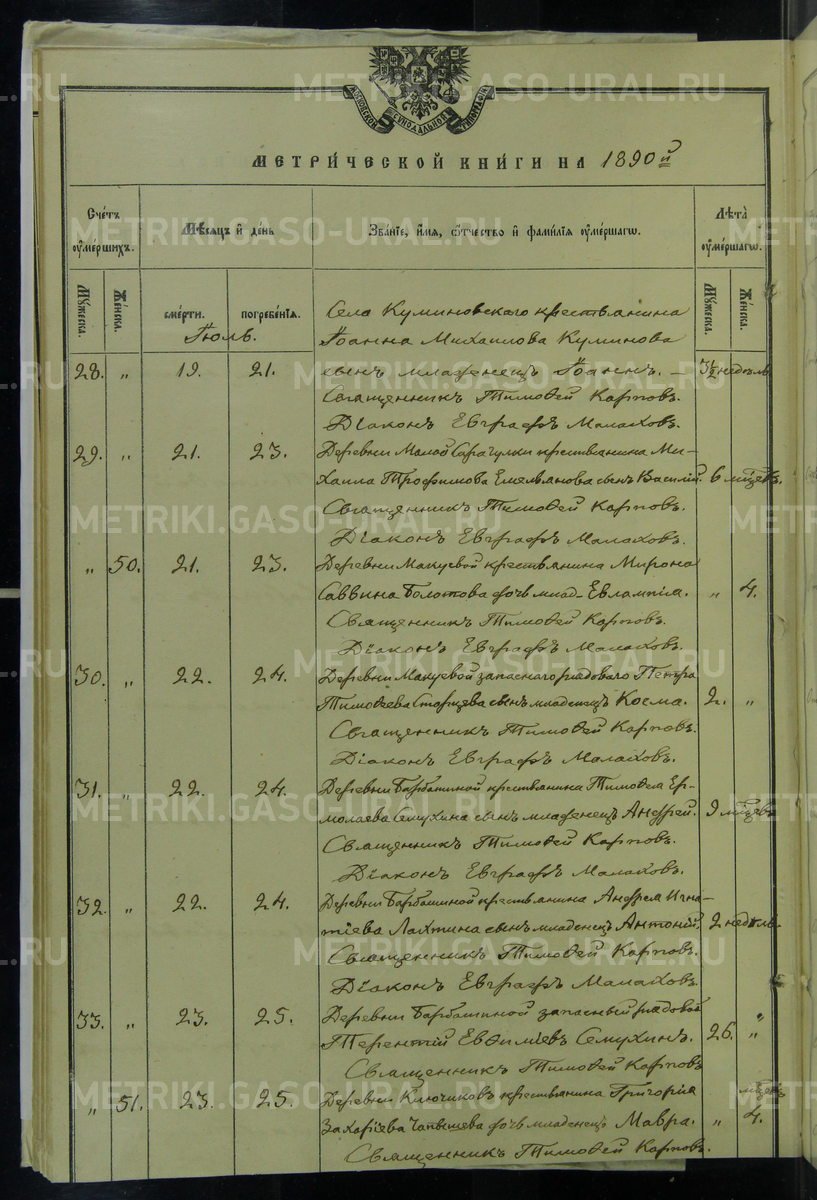 МОСКОВСКОЙ СѴНОДАЛЬНОЙ ТИПОГРАФІИ
МЕТРИ́ЧЕСКОЙ КНИ́ГИ НА 1890й
Сче́тъ ᲂу҆ме́ршихъ.
Мѣ́сяцъ и҆ де́нь
Зва́нїе, и҆́мя, ѻ҆́тчество и҆ фами́лїя ᲂу҆ме́ршагѡ.
Лѣ́та ᲂу҆ме́ршагѡ.
Мꙋ́жеска. Же́нска. сме́рти. погребе́нїя. Мꙋ́жеска. Же́нска.
Іюль.
Села Куминовскаго крестьянина
Іоанна Михаилова Куминова
28. „ 19. 21. сынъ младенецъ Іоаннъ. — 3½ недѣль
Священникъ Тимоѳей Карповъ.
Діаконъ Евграфъ Малаховъ.
29. „ 21. 23. Деревни Малой Сарагулки крестьянина Ми-
хаила Трофимова Емельянова сынъ Василій. 6 мѣсяц.
Священникъ Тимоѳей Карповъ.
Діаконъ Евграфъ Малаховъ.
„ 50. 21. 23. Деревни Макуевой крестьянина Мирона
Саввина Болотова дочь млад. Евлампія. „ 4.
Священникъ Тимоѳей Карповъ.
Діаконъ Евграфъ Малаховъ.
30. „ 22. 24. Деревни Макуевой запаснаго рядоваго Петра
Тимоѳеева Старцева сынъ младенецъ Косма. 2. „
Священникъ Тимоѳей Карповъ.
Діаконъ Евграфъ Малаховъ.
31. „ 22. 24. Деревни Барбашиной крестьянина Тимоѳея Ер-
молаева Семухина сынъ младенецъ Андрей. 9 мѣсяц.
Священникъ Тимоѳей Карповъ.
Діаконъ Евграфъ Малаховъ.
32. „ 22. 24. Деревни Барбашиной крестьянина Андрея Игна-
тіева Лахтина сынъ младенецъ Антоній. 2 недѣль.
Священникъ Тимоѳей Карповъ.
Діаконъ Евграфъ Малаховъ.
33. „ 23. 25. Деревни Барбашиной запасный рядовой
Терентій Евѳиміевъ Семухинъ. 26. „
Священникъ Тимоѳей Карповъ
„ 51. 23. 25. Деревни Ключиковъ крестьянина Григорія
Захаріева дочь младенецъ Мавра. „ 4.
Священникъ Тимоѳей Карповъ.
METRIKI.GASO-URAL.RU